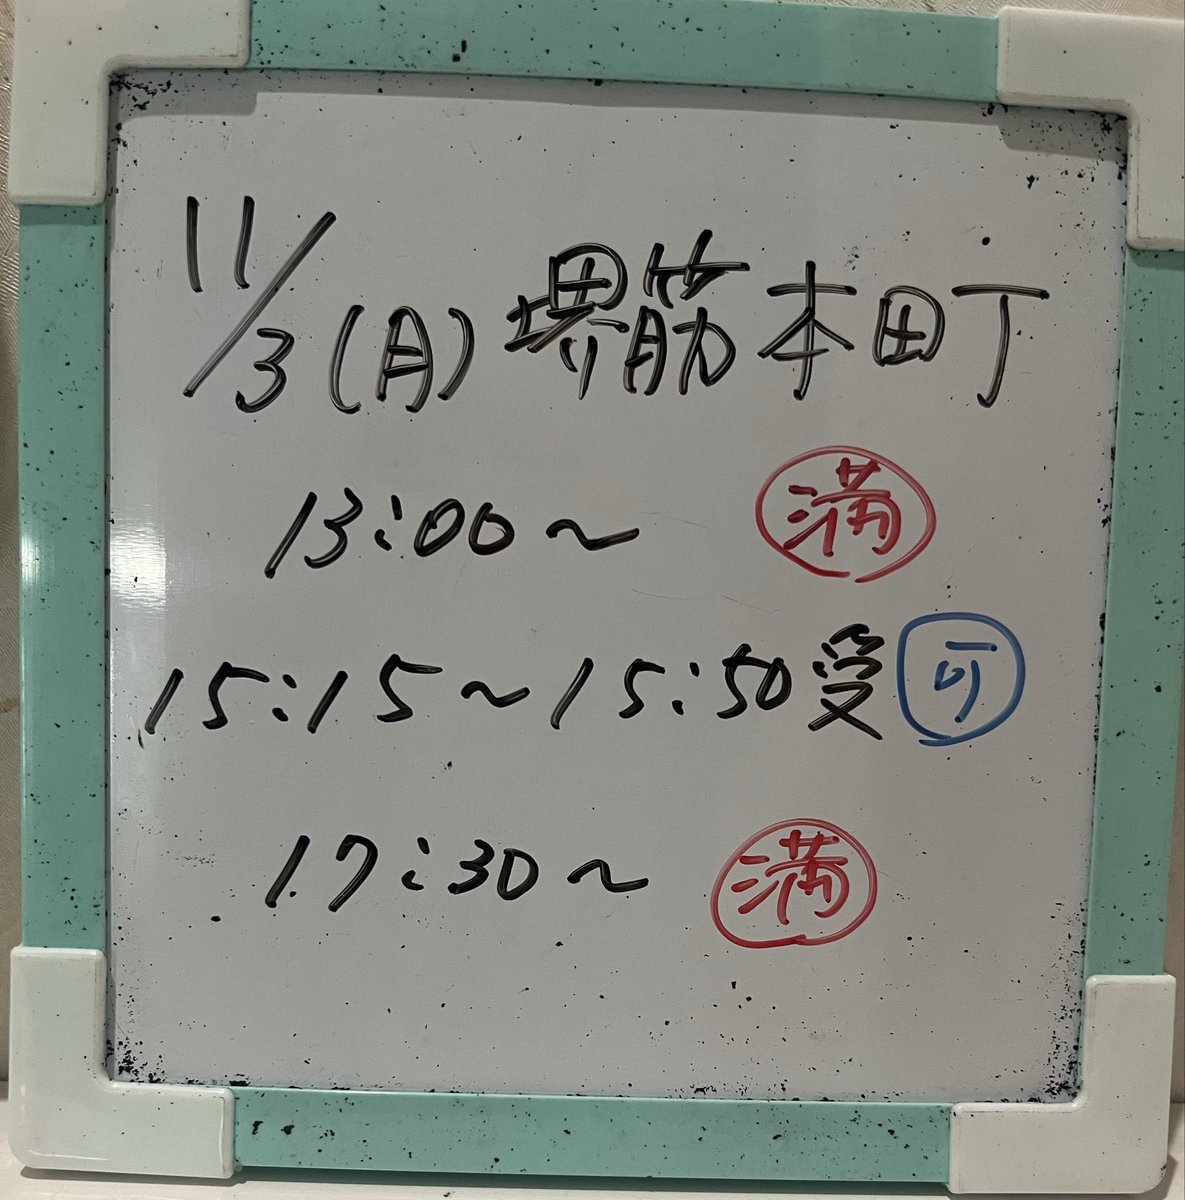 11/3(月)堺筋本町
13:00~ 満
15:15~15:50受可
17:30~ 満